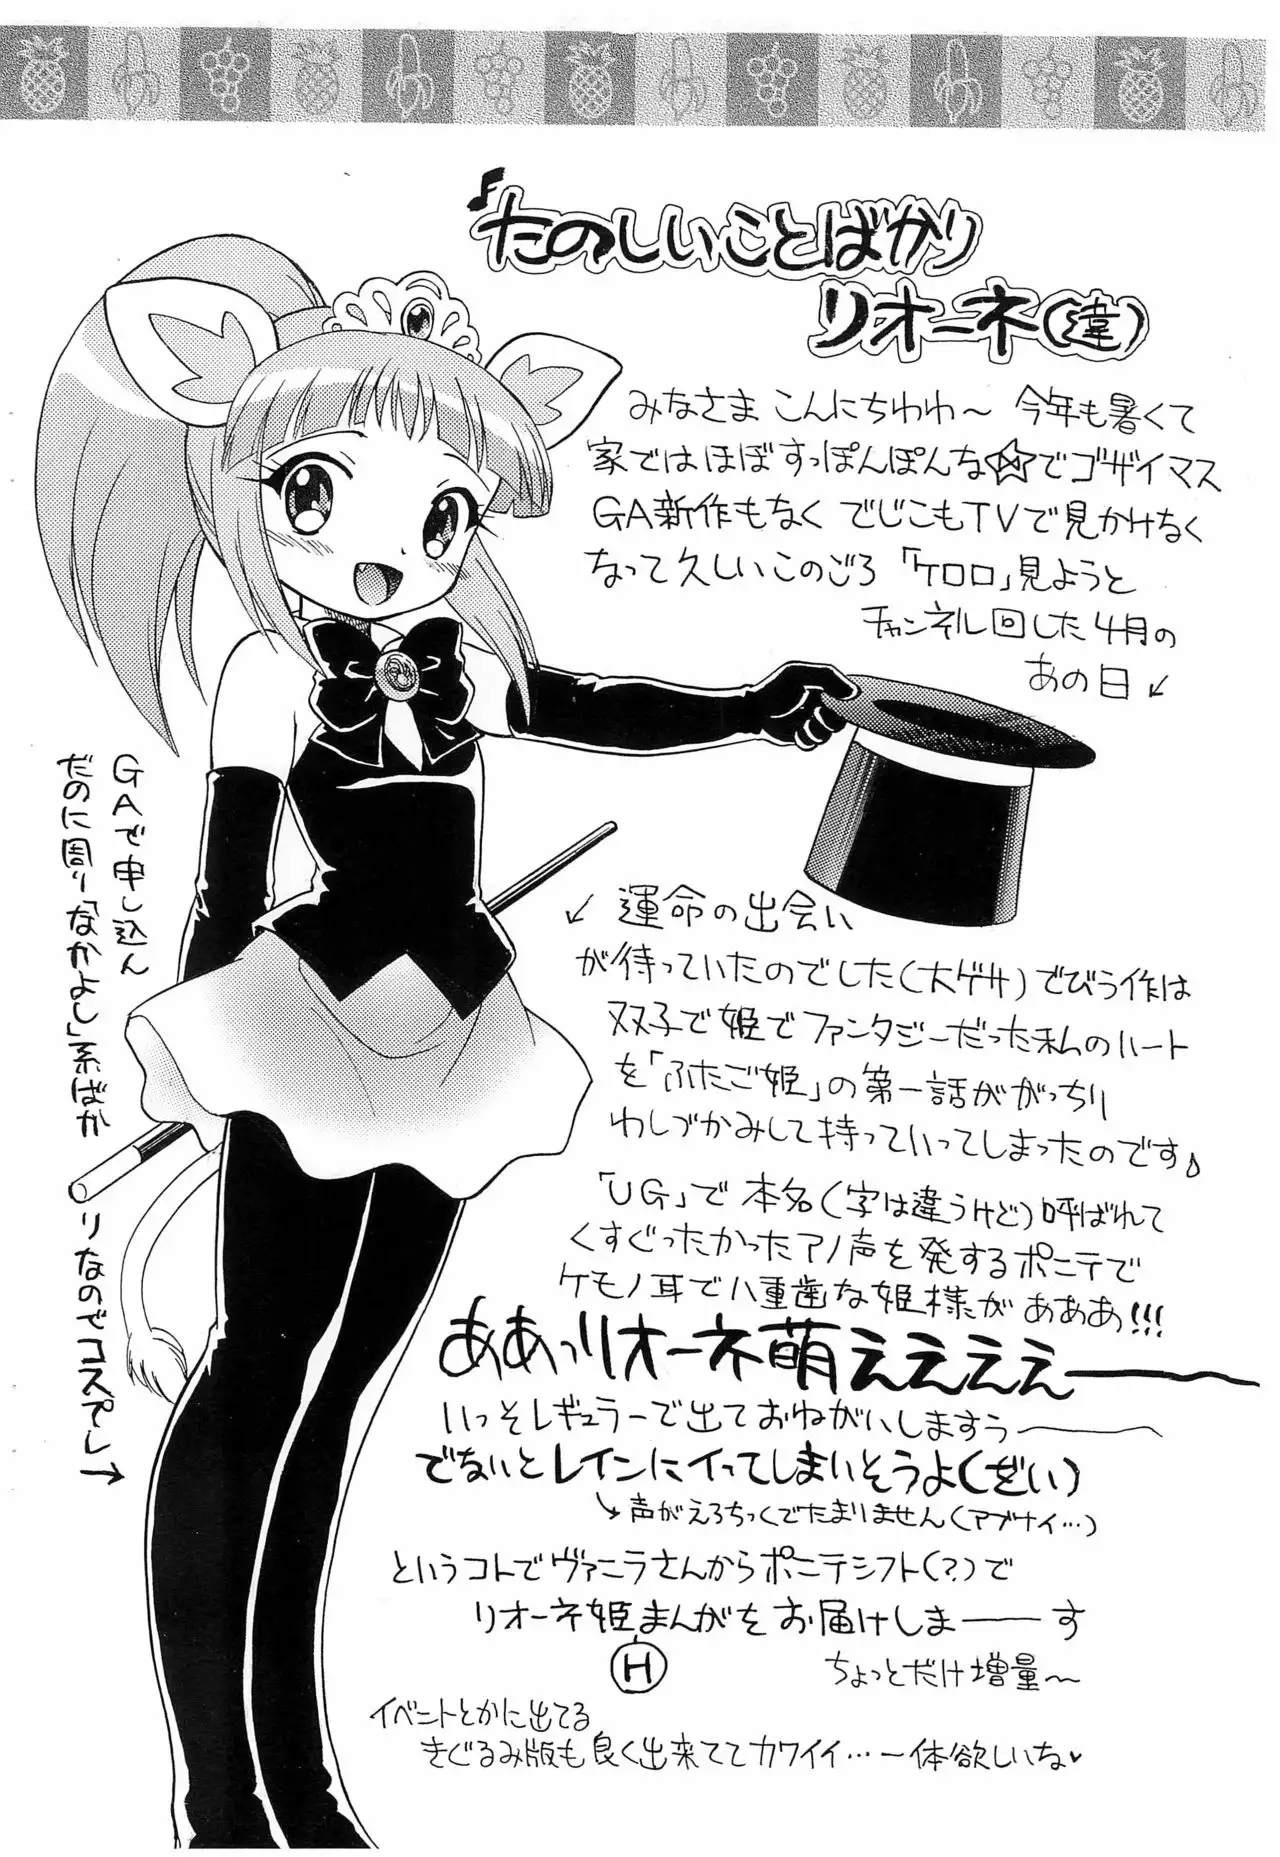 ♪たのしいことばかり
リオーネ(違)
みなさま こんにちわわ～ 今年も暑くて
家ではほぼすっぽんぽんな☆でゴザイマス
GA新作もなく でじこもTVで見かけなく
なって久しいこのごろ 「ケロロ」見ようと
チャンネル回した4月の
あの日↙
↙運命の出会い
が待っていたのでした(大ゲサ)でびう作は
双子で姫でファンタジーだった私のハート
を「ふたご姫」の第一話ががっちり
わしづかみして持っていってしまったのです♪
「UG」で本名(字は違うけど)呼ばれて
くすぐったかったアノ声を発するポニテで
ケモノ耳で八重歯な姫様がぁあああ!!!
ああっリオーネ萌ええええ――
いっそレギュラーで出ておねがいしますぅ――
でないとレインにイってしまいそうよ(ざい)
↘声がえろちっくでたまりません(アブナイ…)
というコトでヴァニラさんからポニテシフト(?)で
リオーネ姫まんがをお届けしま――す
H
ちょっとだけ増量～
イベントとかに出てる
きぐるみ版も良く出来ててカワイイ…一体欲しいな♥
GAで申し込ん
だのに周り「なかよし」系ばか
りなのでコスプレ→